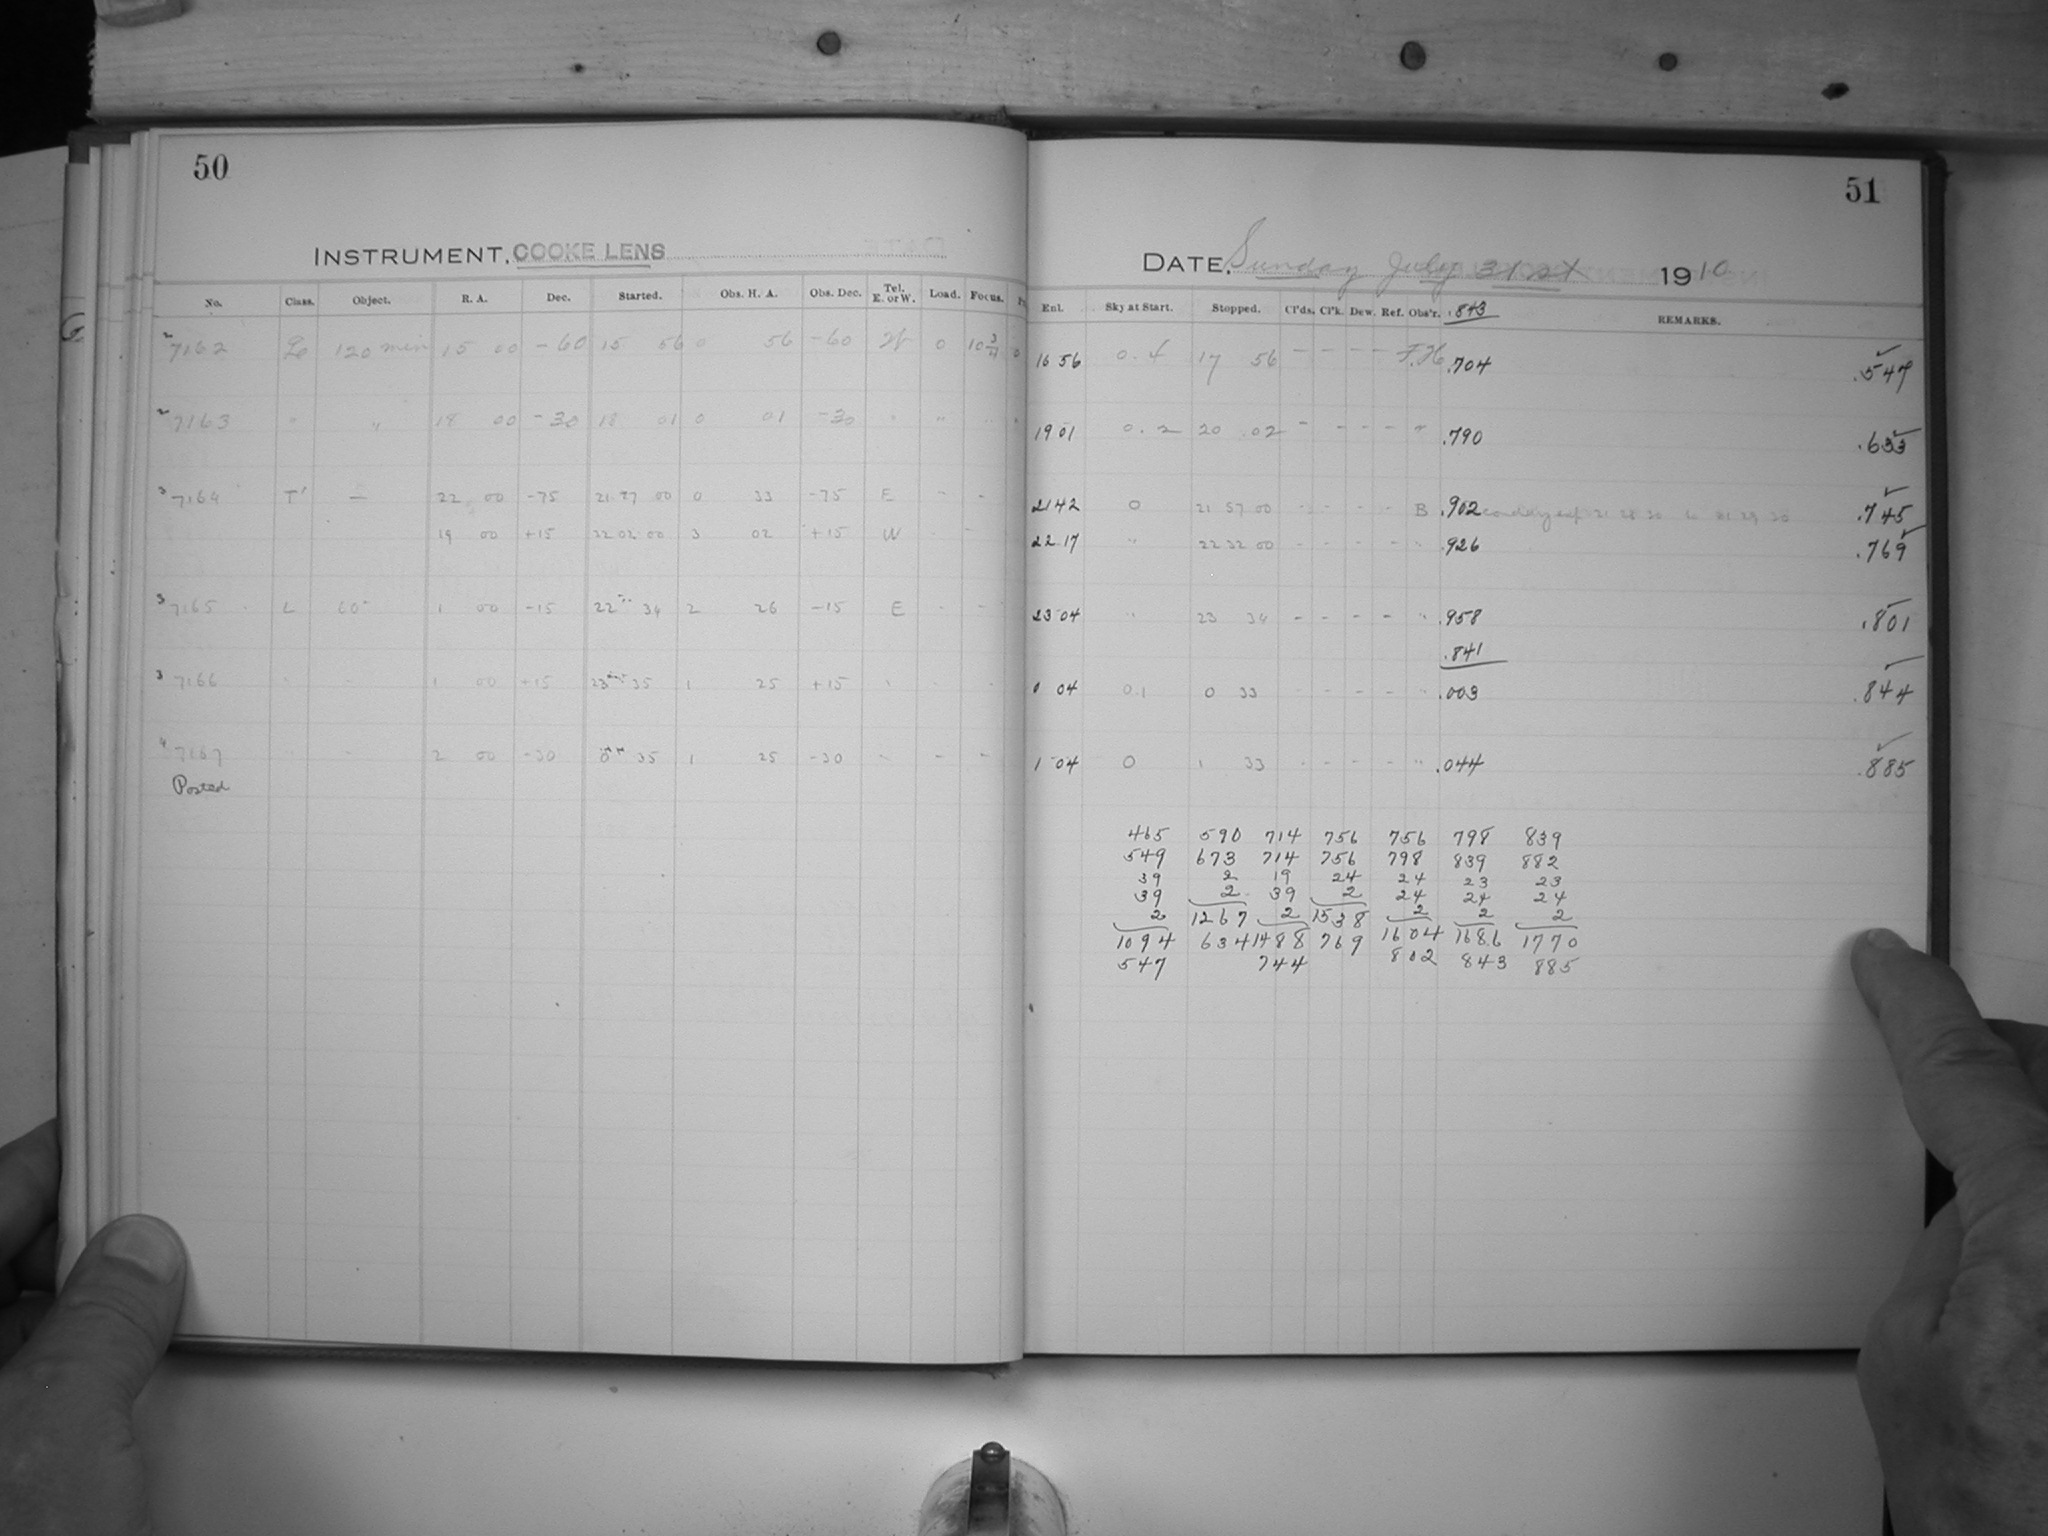 50
INSTRUMENT, COOKE LENS
No. Class. Object. R. A. Dec. Started. Obs. H. A. Obs. Dec. Tel. E. or W. Load. Focus.
2 7162 120 min 15 00 -60 15 56 0 56 -60 W 0 10 3/4 0
2 7163 " " 18 00 -30 18 01 0 01 -30 " "
3 7164 T' — 22 00 -75 21 27 00 0 33 -75 E - -
19 00 +15 22 02 00 3 02 +15 W
3 7165 L 60 1 00 -15 22 34 2 26 -15 E - -
3 7166 " - 1 00 +15 23 35 1 25 +15 "
4 7167 " - 2 00 -30 0 35 1 25 -30 - - -
Posted
51
DATE, Sunday July 31st 1910
Enl. Sky at Start. Stopped. Cl'ds. Cl'k. Dew. Ref. Obs'r. .843 REMARKS.
16 56 0.4 17 56 - - - - F.H. .704 .547
19 01 0.2 20 02 - - - - " .790 .633
21 42 0 21 57 00 - - - - B .902 21 28 30 to 21 29 30 .745
22 17 " 22 32 00 - - - - " .926 .769
23 04 " 23 34 - - - - " .958 .801
.841
0 04 0.1 0 33 - - - - " .003 .844
1 04 0 1 33 - - - - " .044 .885
465 590 714 756 756 798 839
549 673 714 756 798 839 882
39 2 19 24 24 23 23
39 2 39 2 24 24 24
2 1267 2 1538 2 2 2
1094 634 1488 769 1604 1686 1770
547 744 802 843 885